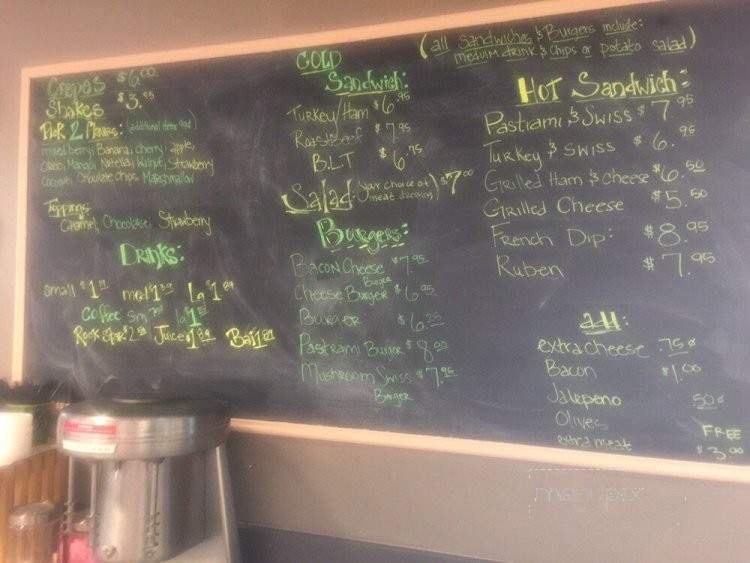 Crepes $6.00
Shakes $3.95
Pick 2 Mixins: (additional items 99¢)
mixed berry, Banana, cherry, apple,
Oreo, Mango, Nutella, Walnut, Strawberry
Coconut, Chocolate Chips, Marshmallow
Toppings
Caramel, Chocolate, Strawberry
Drinks:
Small $1 med $1 La $1
Coffee Sm La $1
Rock Star $2 Juice $1 Bai
COLD
Sandwich:
Turkey/Ham $6.95
Roast Beef $7.95
B.L.T $6.75
Salad: (your choice of meat dressing) $7.00
Burgers:
Bacon Cheese Burger $7.95
Cheese Burger $6.95
Burger $6.25
Pastrami Burger $8.00
Mushroom Swiss Burger $7.95
(all Sandwiches & Burgers include:
meduim drink & chips or potato salad)
Hot Sandwich:
Pastrami & Swiss $7.95
Turkey & Swiss $6.95
Grilled Ham & Cheese $6.50
Grilled Cheese $5.50
French Dip: $8.95
Ruben $7.95
add:
extra cheese .75¢
Bacon $1.00
Jalepeno 50¢
Olives FREE
extra meat $3.00